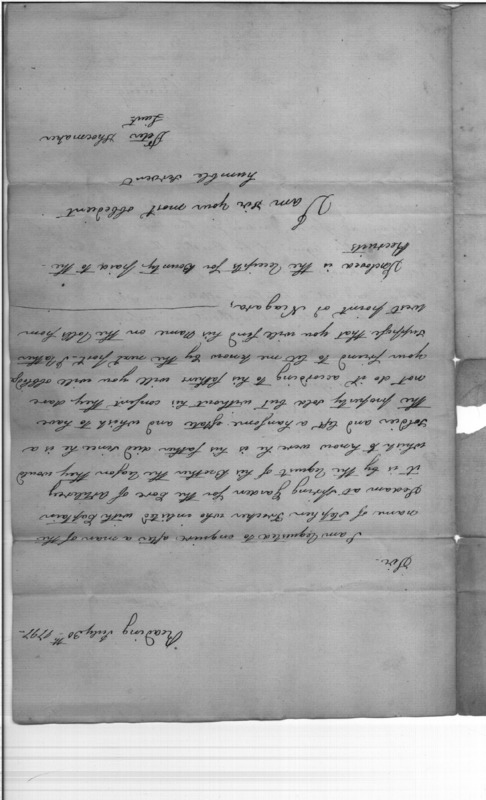 Reading July 30th 1797
Sir.
I am requested to enquire after a man of the
name of Stephen who inlisted with Captain
at Spring Garden for the Core of Artilerey
it is by the request of his Brother the reason they would
wish to know were he is his father died sence he is a
soldier and left a hansome estate and wish to have
the property sold but without his consent they dare
not do it according to his fathers will you will oblidge
your friend to let me know by the next post I
suppose that you will find his name on the Rolls from
West point or Niagara,
Inclosed is the Receipts for Bounty paid to the
Recruits
I am Sir your most obbedient
humble servent
Peter Shoemaker
Lieut